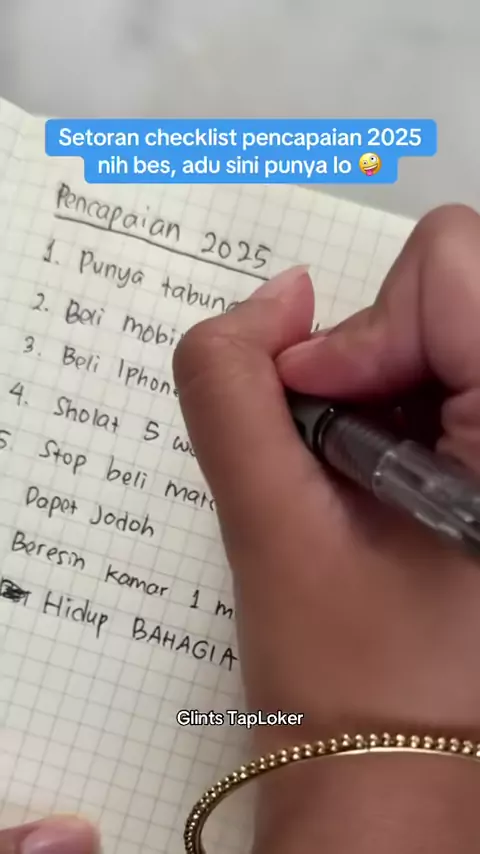 Setoran checklist pencapaian 2025
nih bes, adu sini punya lo 🤪
Pencapaian 2025
1. Punya tabung
2. Beli mobi
3. Beli Iphone
4. Sholat 5 w
5. Stop beli mat
Dapet Jodoh
Beresin kamar 1 m
Hidup BAHAGIA
Glints TapLoker